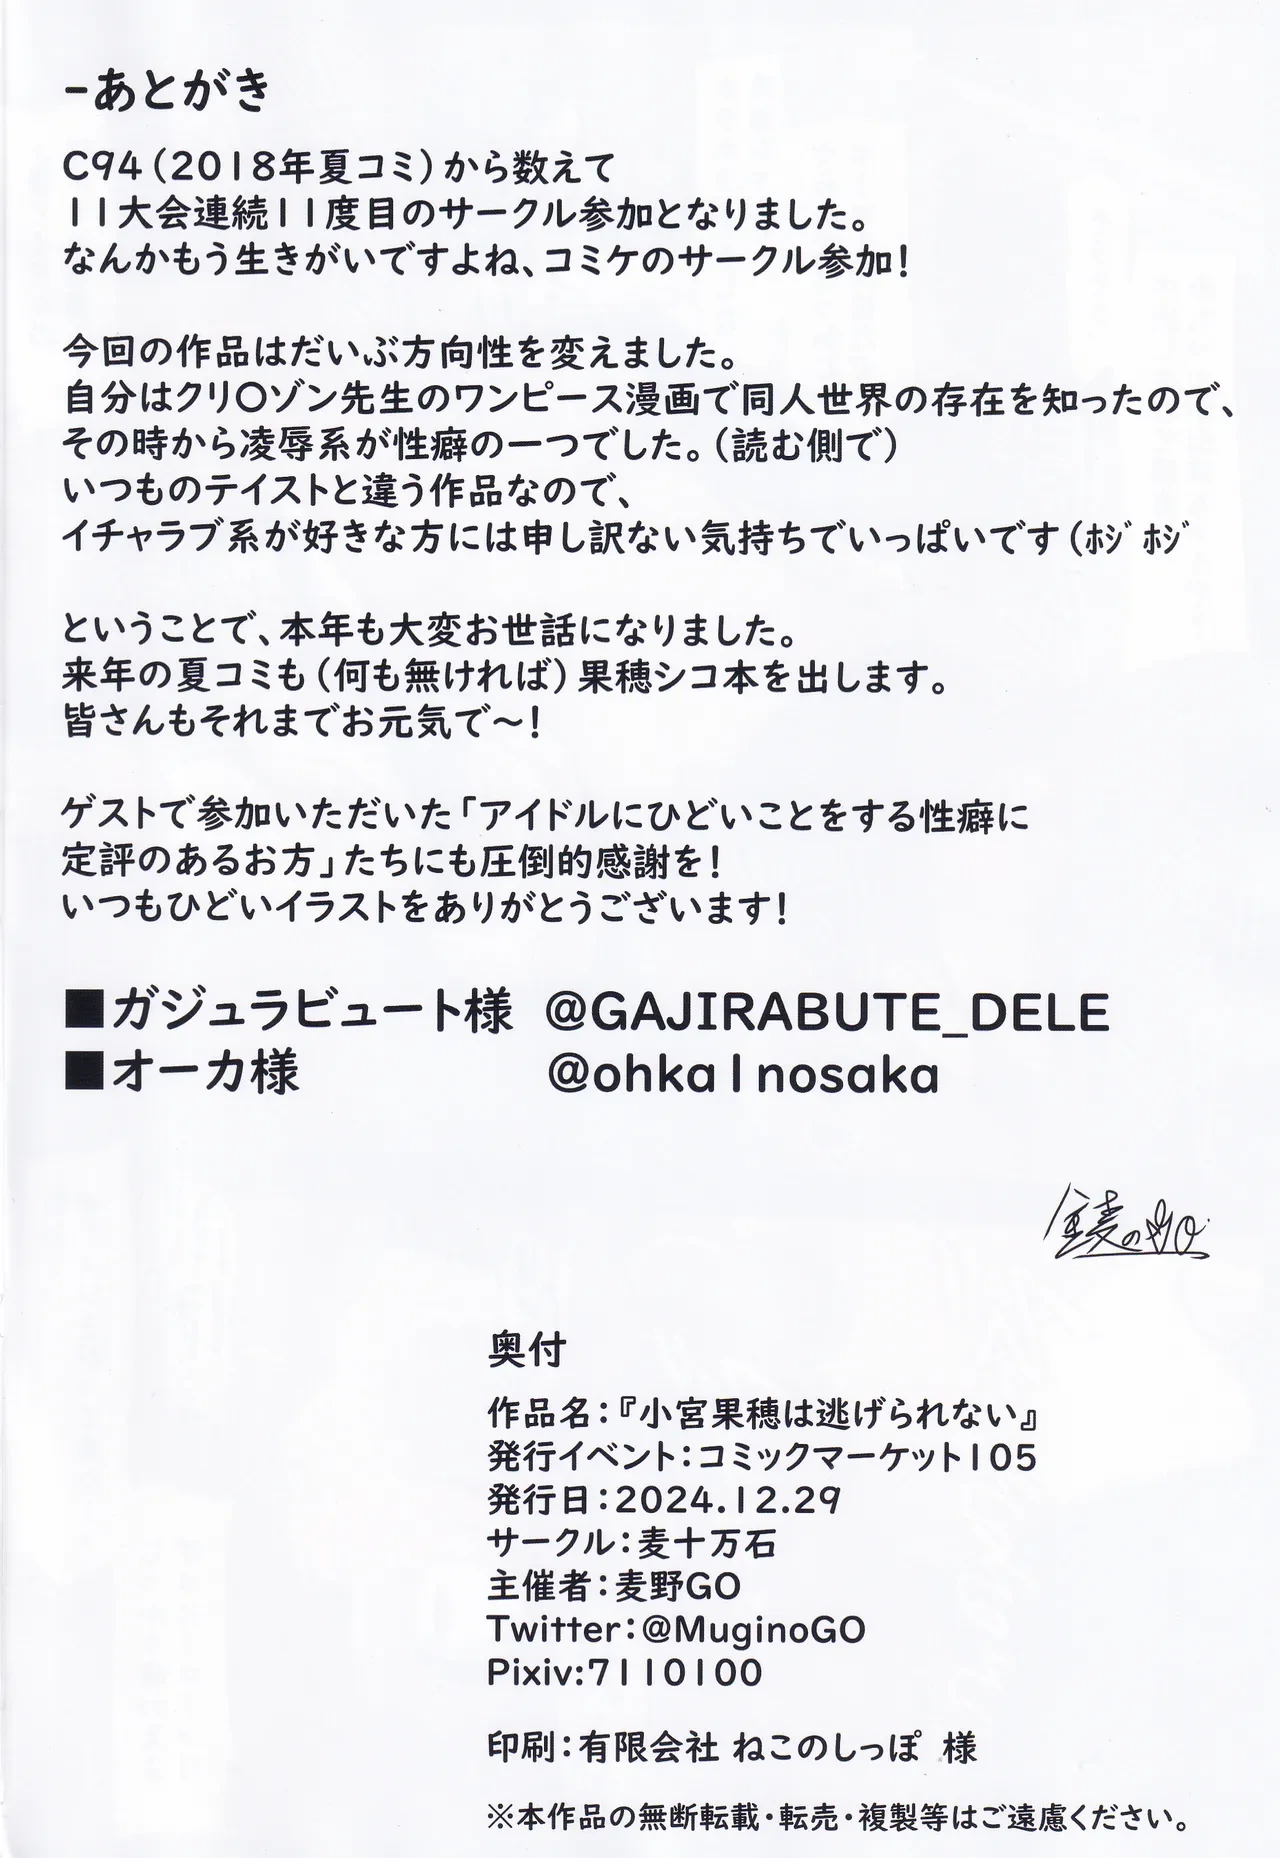 -あとがき
C94(2018年夏コミ)から数えて
11大会連続11度目のサークル参加となりました。
なんかもう生きがいですよね、コミケのサークル参加!
今回の作品はだいぶ方向性を変えました。
自分はクリ〇ゾン先生のワンピース漫画で同人世界の存在を知ったので、
その時から凌辱系が性癖の一つでした。(読む側で)
いつものテイストと違う作品なので、
イチャラブ系が好きな方には申し訳ない気持ちでいっぱいです(ﾎｼﾞﾎｼﾞ
ということで、本年も大変お世話になりました。
来年の夏コミも(何も無ければ)果穂シコ本を出します。
皆さんもそれまでお元気で～!
ゲストで参加いただいた「アイドルにひどいことをする性癖に
定評のあるお方」たちにも圧倒的感謝を!
いつもひどいイラストをありがとうございます!
■ガジュラビュート様 @GAJIRABUTE_DELE
■オーカ様 @ohka1nosaka
奥付
作品名:『小宮果穂は逃げられない』
発行イベント:コミックマーケット105
発行日:2024.12.29
サークル:麦十万石
主催者:麦野GO
Twitter:@MuginoGO
Pixiv:7110100
印刷:有限会社 ねこのしっぽ 様
※本作品の無断転載・転売・複製等はご遠慮ください。